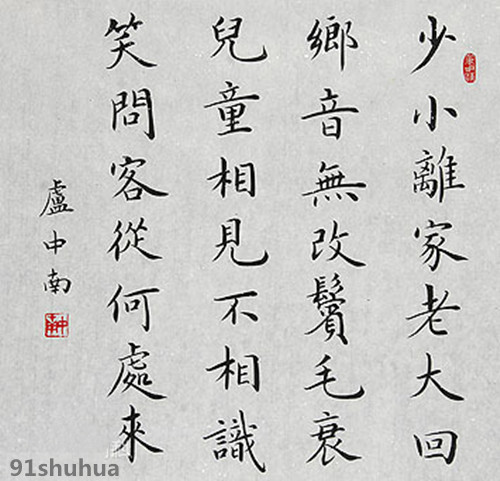 少小離家老大回
鄉音無改鬢毛衰
兒童相見不相識
笑問客從何處來
盧中南
91shuhua